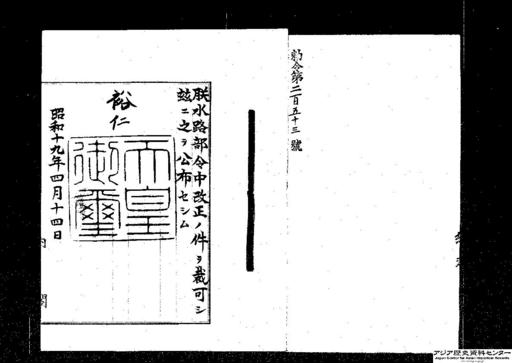 勅令第二百五十三號
朕水路部令中改正ノ件ヲ裁可シ
茲ニ之ヲ公布セシム
裕仁
天皇
御璽
昭和十九年四月十四日
内閣
アジア歴史資料センター
Japan Center for Asian Historical Records